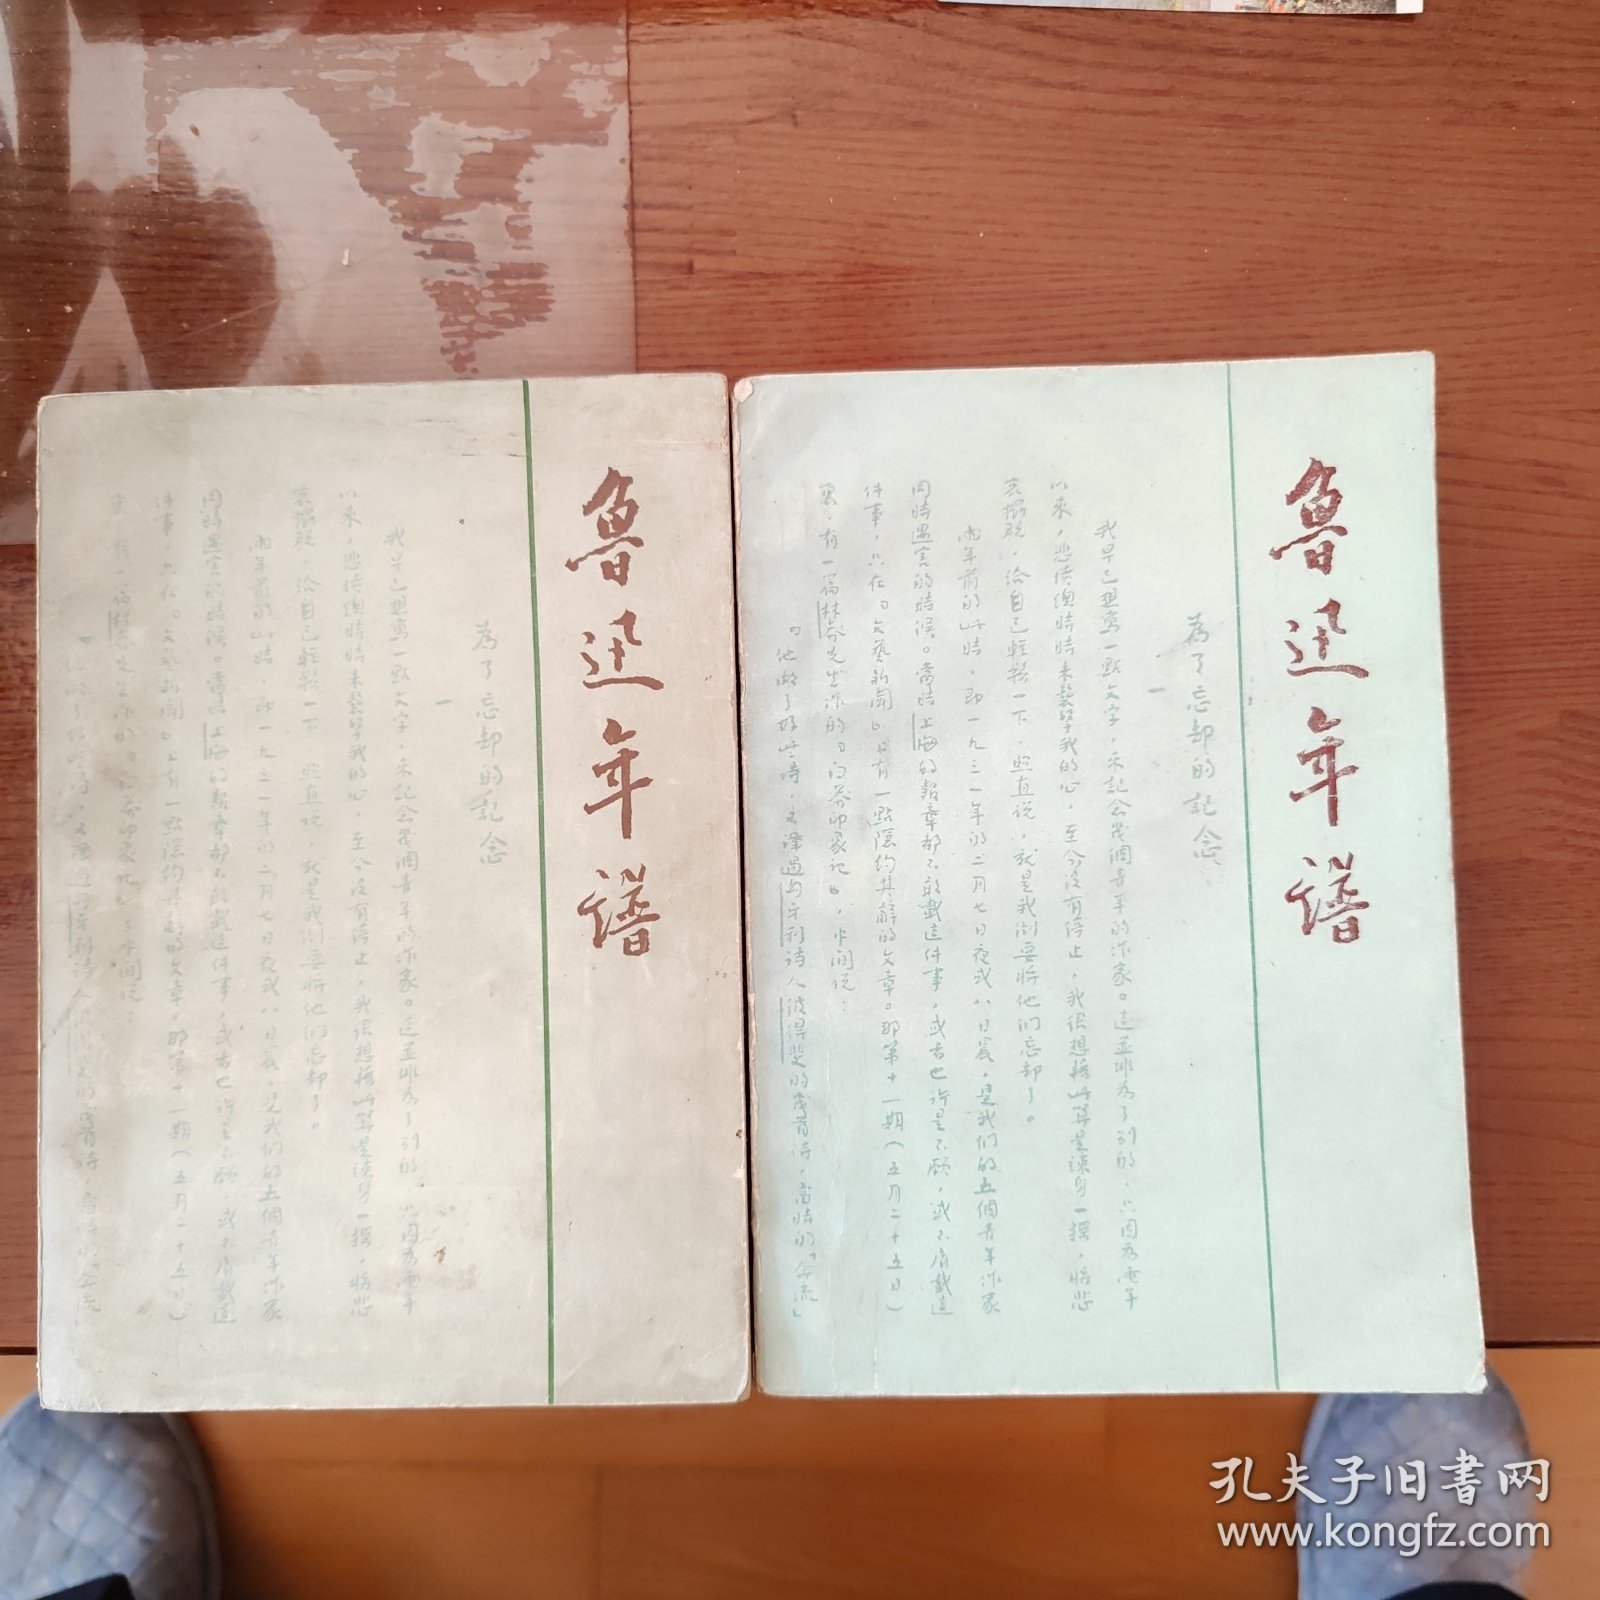 魯迅年譜
為了忘却的記念
一
我早已想寫一點文字，來記念幾個青年的作家。這並非為了別的，只因為兩年
以來，悲憤總時時來襲擊我的心，至今沒有停止，我很想藉此算是竦身一搖，將悲
哀擺脫，給自己輕鬆一下，照直說，就是我倒要將他們忘却了。
兩年前的此時，即一九三一年的二月七日夜或八日晨，是我們的五個青年作家
同時遇害的時候。當時上海的報章都不敢載這件事，或者也許是不願，或不屑載這
件事，只在「文藝新聞」上有一點隱約其辭的文章。那第十一期（五月二十五日）
裏，有一篇林莽先生作的「白莽印象記」，中間說：
「他做了好些詩，又譯過匈牙利詩人彼得斐的幾首詩，當時的「奔流」
魯迅年譜
為了忘却的記念
一
我早已想寫一點文字，來記念幾個青年的作家。這並非為了別的，只因為兩年
以來，悲憤總時時來襲擊我的心，至今沒有停止，我很想藉此算是竦身一搖，將悲
哀擺脫，給自己輕鬆一下，照直說，就是我倒要將他們忘却了。
兩年前的此時，即一九三一年的二月七日夜或八日晨，是我們的五個青年作家
同時遇害的時候。當時上海的報章都不敢載這件事，或者也許是不願，或不屑載這
件事，只在「文藝新聞」上有一點隱約其辭的文章。那第十一期（五月二十五日）
裏，有一篇林莽先生作的「白莽印象記」，中間說：
「他做了好些詩，又譯過匈牙利詩人彼得斐的幾首詩，當時的「奔流」
孔夫子旧书网
www.kongfz.com